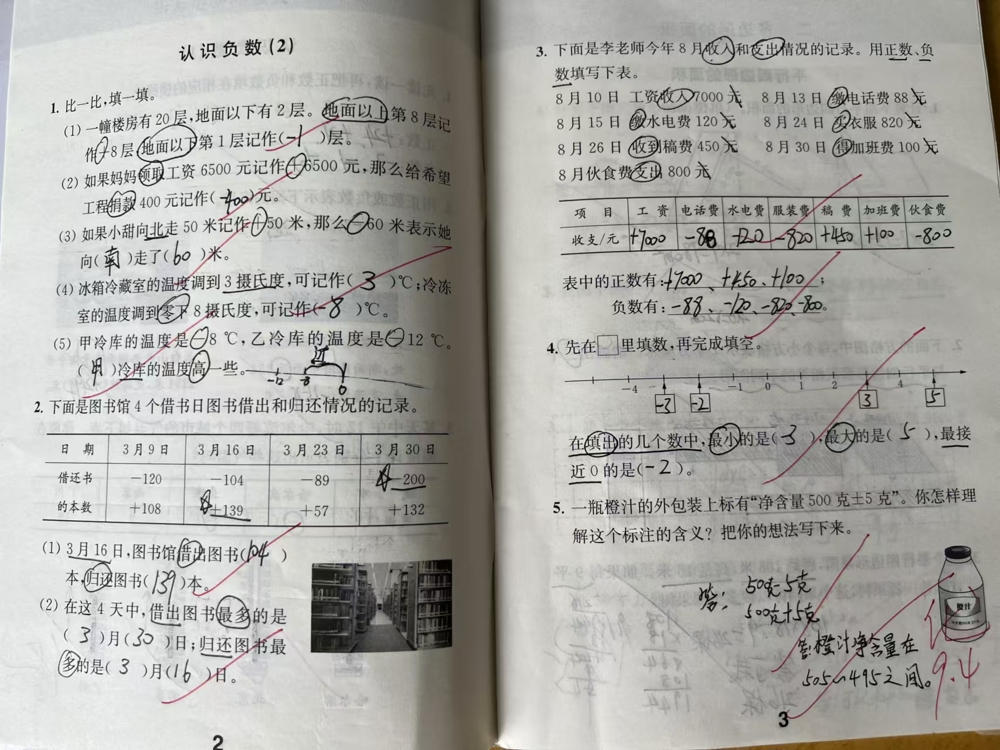 认识负数(2)
1. 比一比,填一填。
(1) 一幢楼房有20层,地面以下有2层。地面以上第8层记
作+8层,地面以下第1层记作(-1)层。
(2) 如果妈妈领取工资6500元记作+6500元,那么给希望
工程捐款400元记作(-400)元。
(3) 如果小甜向北走50米记作+50米,那么-60米表示她
向(南)走了(60)米。
(4) 冰箱冷藏室的温度调到3摄氏度,可记作(3)℃;冷冻
室的温度调到零下8摄氏度,可记作(-8)℃。
(5) 甲冷库的温度是-8℃,乙冷库的温度是-12℃。
(甲)冷库的温度高一些。
-12 -8 0
2. 下面是图书馆4个借书日图书借出和归还情况的记录。
日 期 3月9日 3月16日 3月23日 3月30日
借还书 -120 -104 -89 -200
的本数 +108 +139 +57 +132
(1) 3月16日,图书馆借出图书(104)
本,归还图书(139)本。
(2) 在这4天中,借出图书最多的是
(3)月(30)日;归还图书最
多的是(3)月(16)日。
2
3. 下面是李老师今年8月收入和支出情况的记录。用正数、负
数填写下表。
8月10日 工资收入7000元 8月13日 缴电话费88元
8月15日 缴水电费120元 8月24日 买衣服820元
8月26日 收到稿费450元 8月30日 得加班费100元
8月伙食费支出800元
项 目 工 资 电话费 水电费 服装费 稿 费 加班费 伙食费
收支/元 +7000 -88 -120 -820 +450 +100 -800
表中的正数有:+7000、+450、+100;
负数有:-88、-120、-820、-800。
4. 先在□里填数,再完成填空。
-4 -1 0 1 2 4
-3 -2 3 5
在填出的几个数中,最小的是(-3),最大的是(5),最接
近0的是(-2)。
5. 一瓶橙汁的外包装上标有“净含量500克±5克”。你怎样理
解这个标注的含义?把你的想法写下来。
答: 500克-5克
500克+5克
答:橙汁净含量在
505~495之间。
橙汁
9.4
3